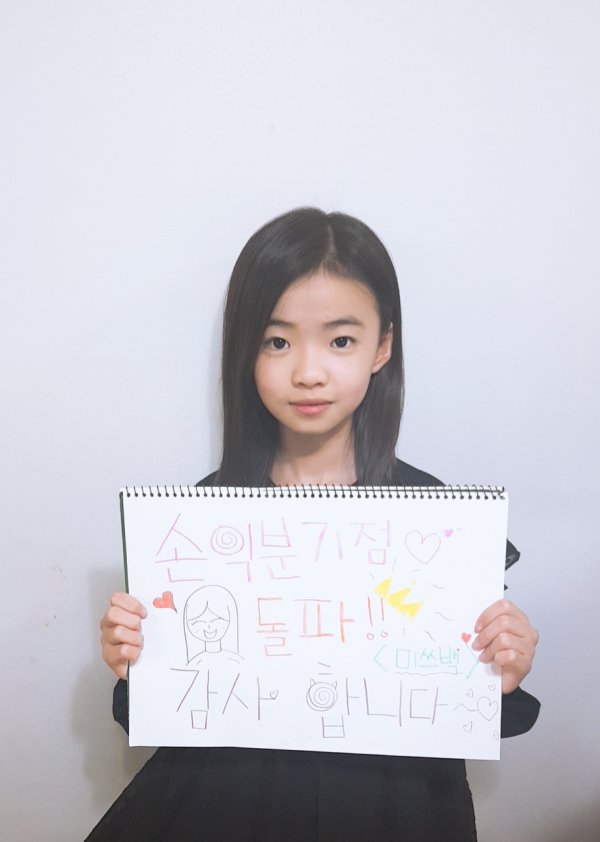 손익분기점
돌파!!
<미쓰백>
감사합니다